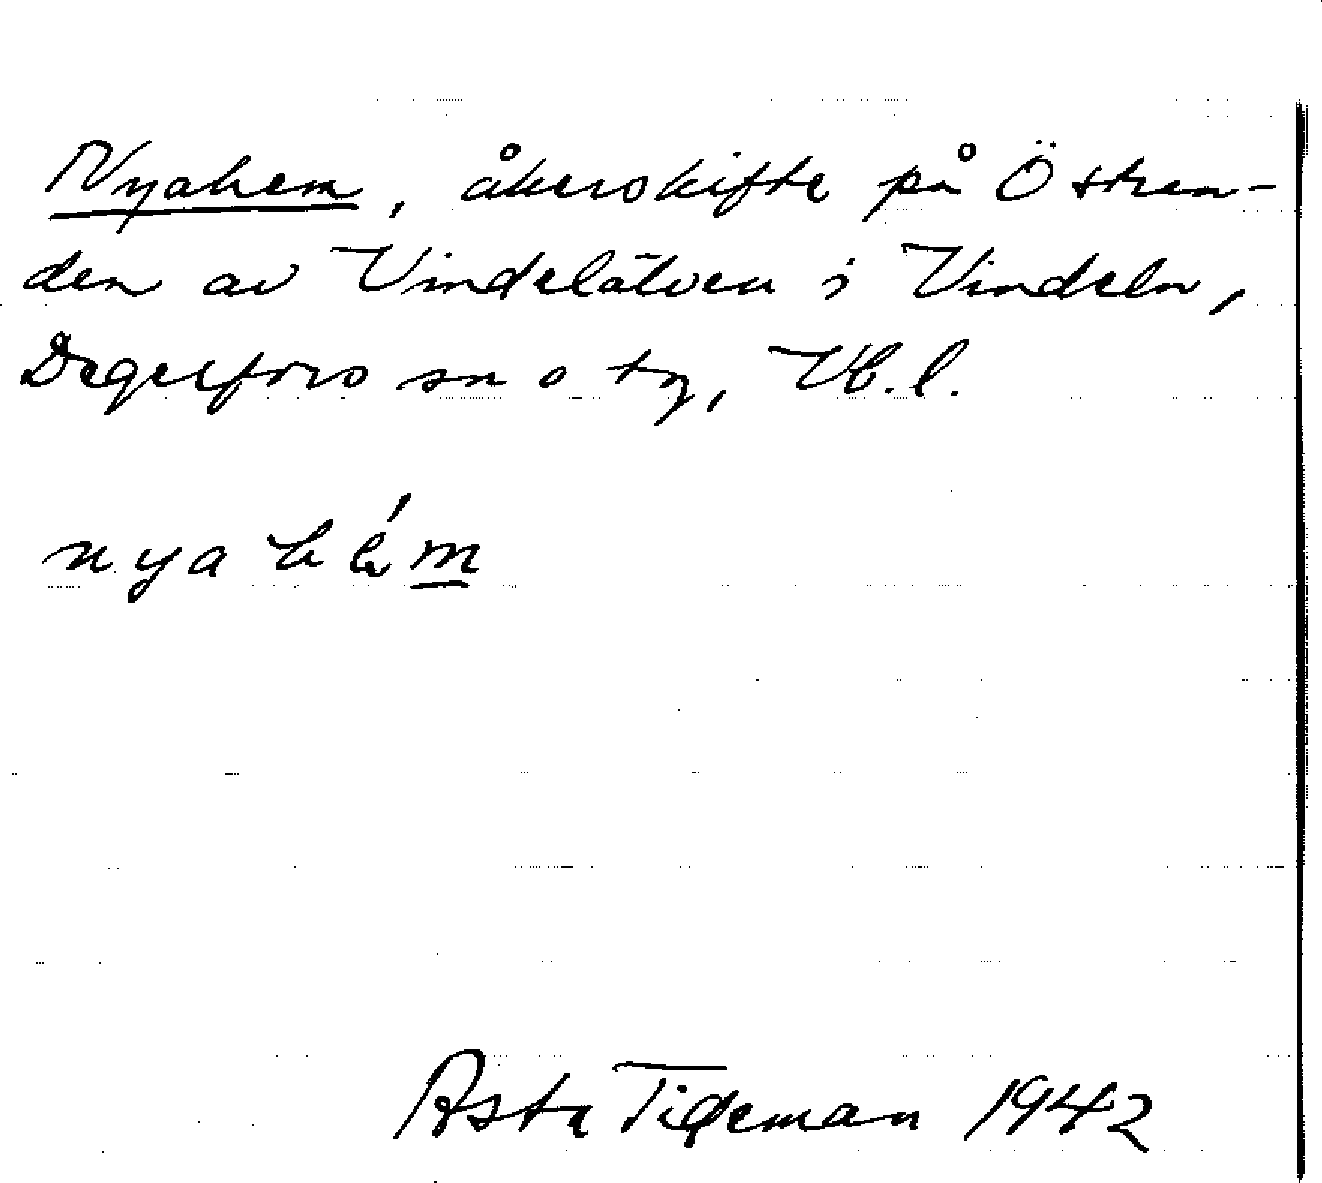 Nyahem, åkerskifte på Östran-
den av Vindelälven i Vindeln,
Degerfors sn o tg, Vb.l.
nya hém
Asta Tideman 1942